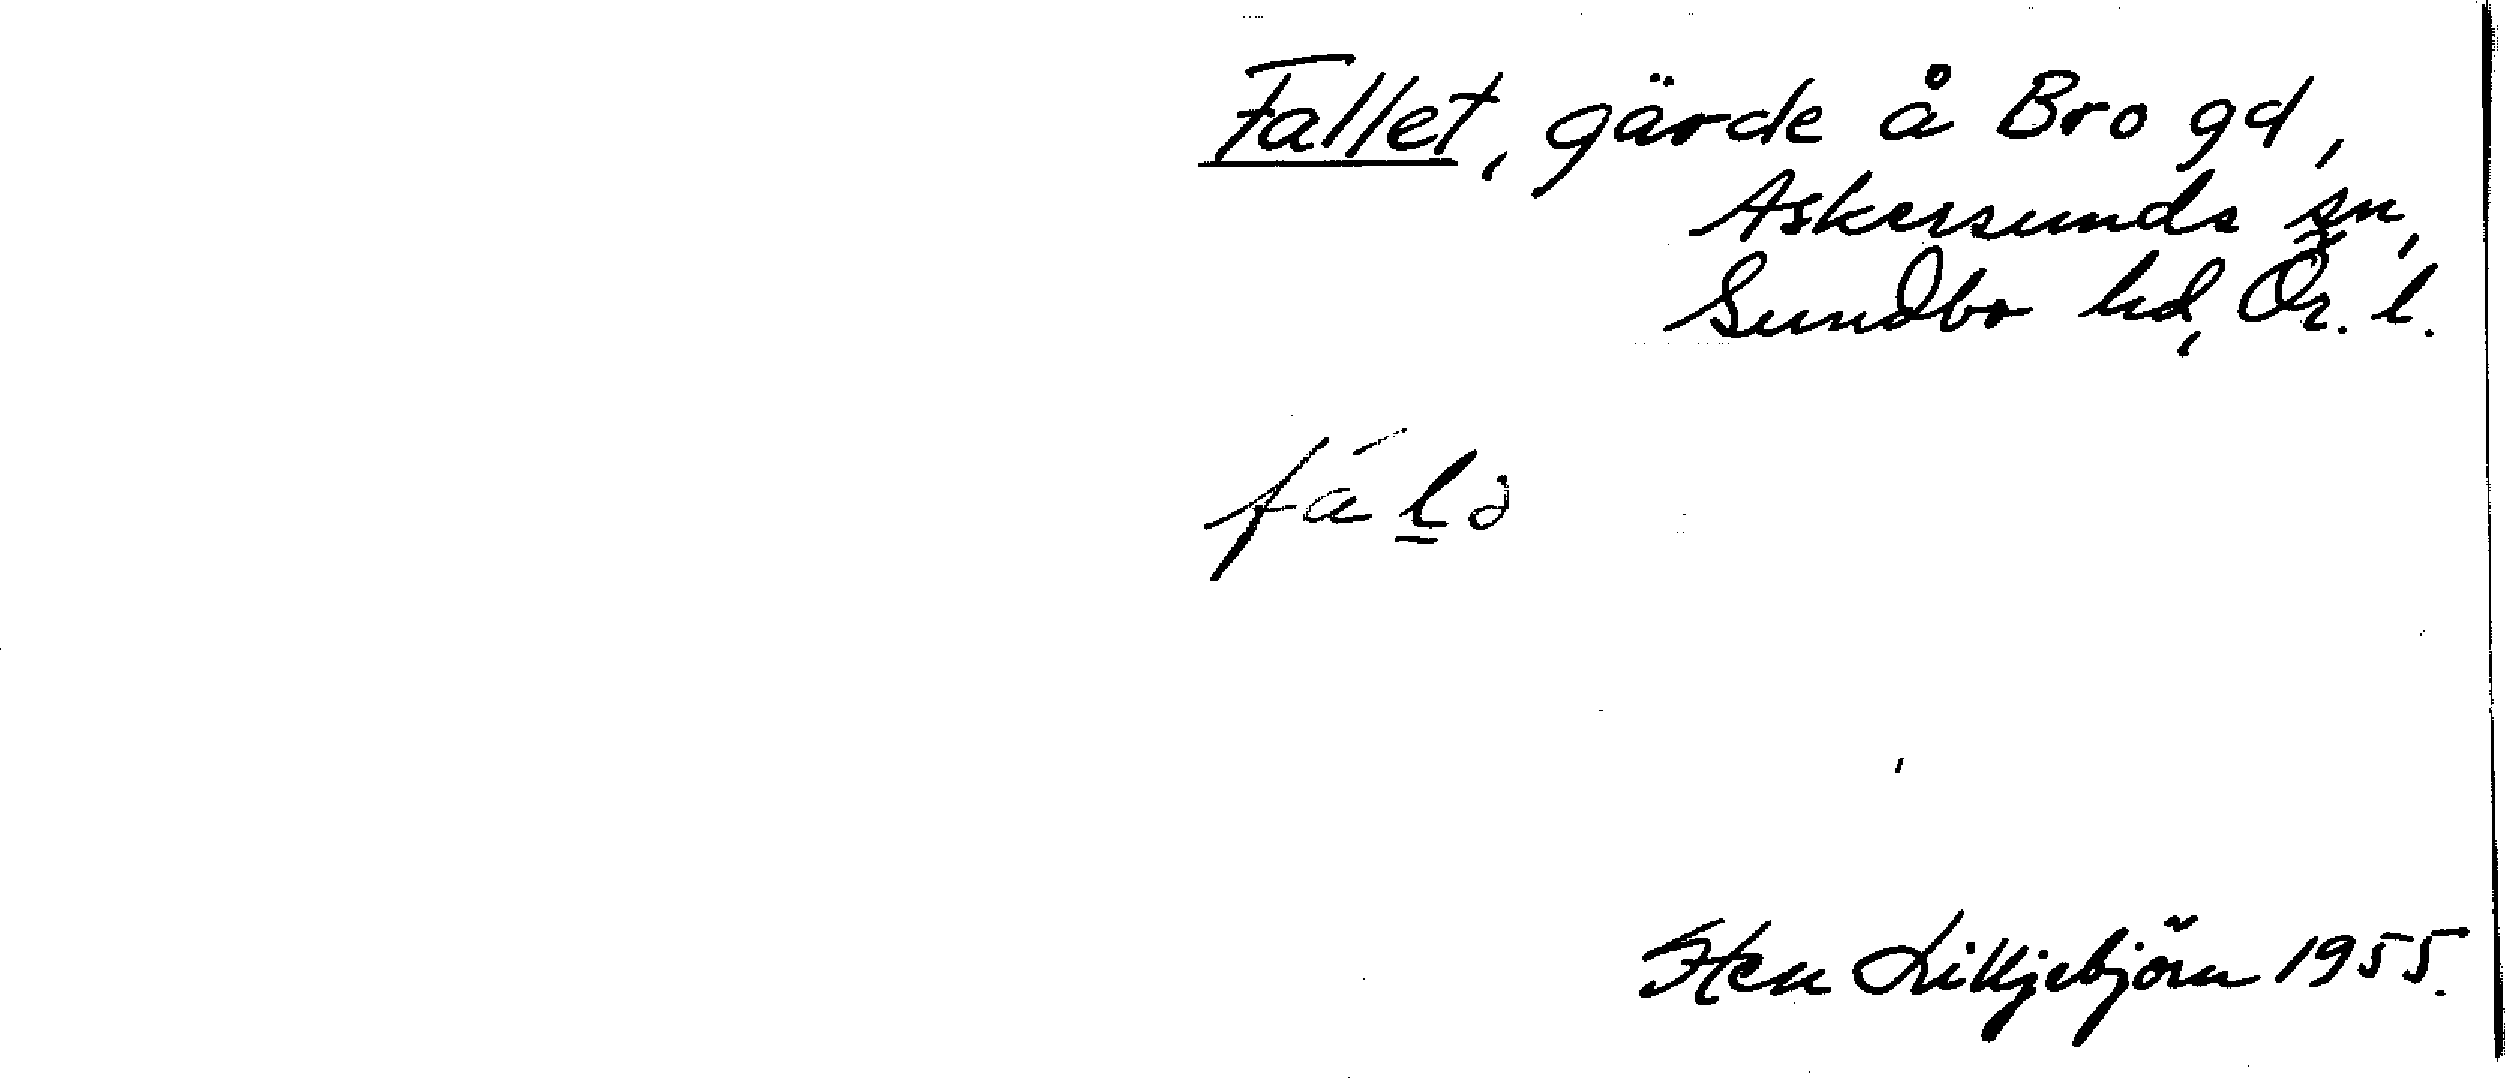 Fallet, gärde å Bro gd,
Askersunds sn,
Sundbo hd, Ör. l.
fál̲ə
Sten Lilljebjörn 1955.